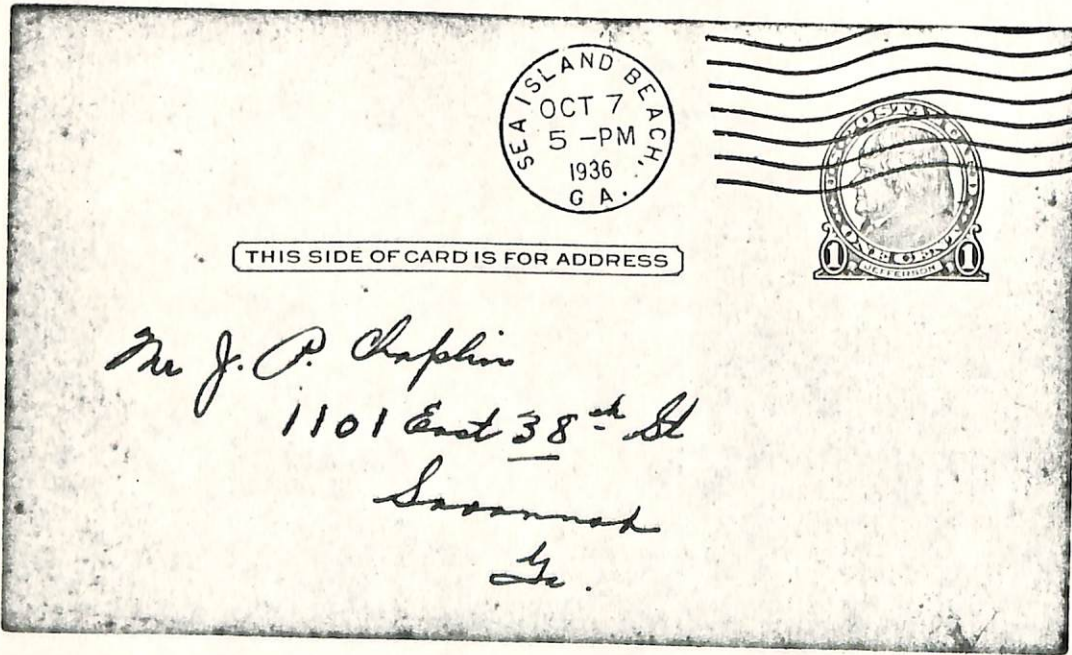 SEA ISLAND BEACH,
OCT 7
5 -PM
1936
GA.
1 JEFFERSON 1
THIS SIDE OF CARD IS FOR ADDRESS
Mr J. P. Chaplin
1101 East 38th St
Savannah
Ga.